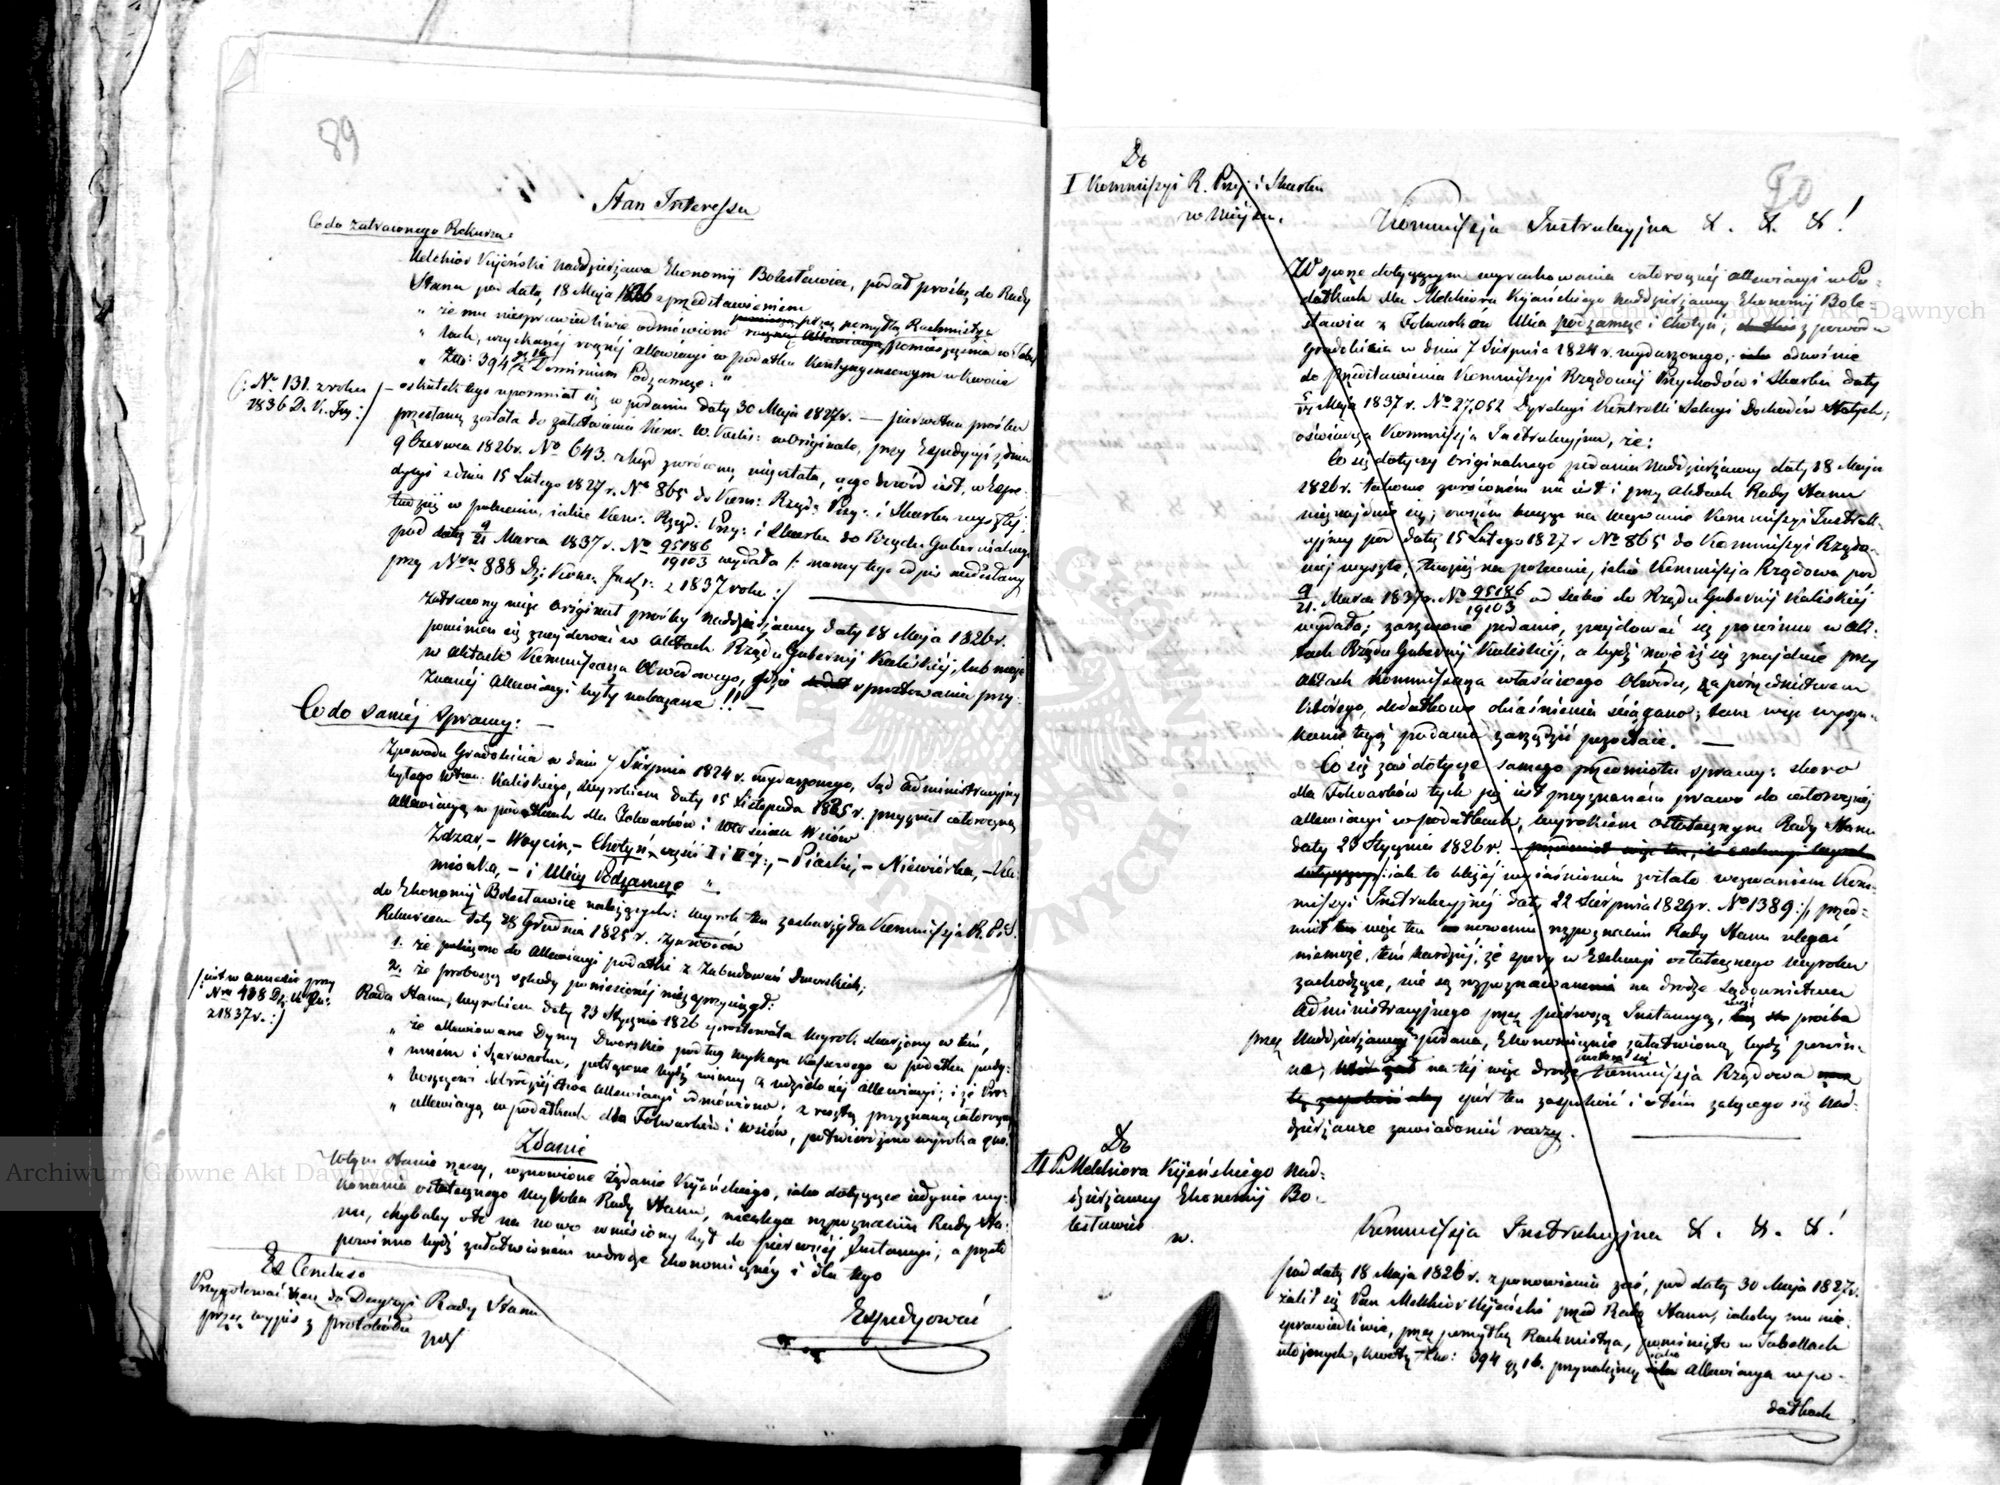 89
Stan Interessu
Co do zatraconego Rekursu:
Melchior Kijeński Naddzierżawca Ekonomij Bolesławiec, podał prośbę do Rady
Stanu pod datą 18 Maja 1826 z przedstawieniem
" że mu niesprawiedliwie odmówiono przez pomyłkę Rachmistrza
" lach, uzyskanej allewiacyi w podatku Kontyngensowym w kwocie
" Złp: 394 gr 16 z Dominium Podzamcze. "
(: No 131. z roku
1836 D. K. Iny :)
o skutek tego upomniał się w podaniu daty 30 Maja 1827 r. — pierwotna prośba
przesłaną została do załatwienia Kom. W. Kalis: w Originale, przy Expedycyi z dnia
9 Czerwca 1826 r. No 643. zkąd zwróconą niezostała, czego dowód jest, w Expe-
dycyi z dnia 15 Lutego 1827 r. No 865 do Kom: Rząd: Przy: i Skarbu wyszłej
tudzież w poleceniu, jakie Kom: Rząd: Przy: i Skarbu do Rządu Gubernialnego
pod datą 9/21 Marca 1837 r. No 95186/19103 wydała /: mamy tego odpis nadesłany
przy Nrze 888 Dz: Kom. Ins: r. z 1837 roku :/
Zatracony więc originał prośby Naddzierżawcy daty 18 Maja 1826 r.
powinien się znajdować w Aktach Rządu Gubernij Kaliskiej, lub może
w Aktach Kommissarza Obwodowego, gdzie sprostowania przy-
znanej allewiacyi były nakazane !!! —
Co do samej sprawy: —
Z powodu Gradobicia w dniu 7 Sierpnia 1824 r. wydarzonego, Sąd Administracyjny
byłego Wdztwa Kaliskiego, Wyrokiem daty 15 Listopada 1825 r. przyznał całoroczną
allewiacyą w podatkach dla Folwarków i Włościan Wsiów
Zdzar, — Woycin, — Chotyń, części I i II :, — Piaski, — Niewiórka, — Ka-
mionka, — i Ulica Podzamcze "
do Ekonomij Bolesławiec należących: wyrok ten zaskarżyła Kommissja R. P. i S.
Rekursem daty 28 Grudnia 1825 r. z powodów
1. że policzono do allewiacyi podatki z Zabudowań Dworskich;
2. że proboszcz szkody poniesionej niezaprzysiągł.
/: jest w annexie przy
Nrze 438 Dz: K. In:
z 1837 r. :/
Rada Stanu, Wyrokiem daty 23 Stycznia 1826 sprostowała Wyrok skarżony w tém,
" że allewiowane Dymy Dworskie podług wykazu Kassowego w podatku pody-
" mném i Szarwarku, potrącone bydź winny z udzielonej allewiacyi; i że Pro-
" boszczowi allewiacyi odmówiono; z resztą przyznaną całoroczną
" allewiacyą w podatkach dla Folwarków i wsiów, potwierdzono wyroku quo.
Zdanie
W tym stanie rzeczy, wznowione żądanie Kijeńskiego, jako dotyczące jedynie wy-
konania ostatecznego Wyroku Rady Stanu, nieulega rozpoznaniu Rady Sta-
nu, chybaby na nowo wniesiony był do pierwszej Instancyi; a przeto
powinno bydź załatwioném w drodze Ekonomicznéj i dla tego
Expedyować
Ex Concluso
Przygotować do Decyzyi Rady Stanu
przez wypis z protokółu
90
Do
I Kommissyi R. Przy: i Skarbu
w miejscu.
Kommissja Instrukcyjna &. &. &!
W sporze dotyczącym wyrachowania całorocznej allewiacyi w Po-
datkach dla Melchiora Kijeńskiego Naddzierżawcy Ekonomij Bole-
sławiec z Folwarków Ulica podzamcze i Chotyń, z powodu
Gradobicia w dniu 7 Sierpnia 1824 r. wydarzonego, odnośnie
do przedstawienia Kommissyi Rządowej Przychodów i Skarbu daty
Maja 1837 r. No 27,052 Dyrekcyi Kontroli Sekcyi Dochodów Stałych;
oświadcza Kommissja Instrukcyjna, że:
Co się dotyczy originalnego podania Naddzierżawcy daty 18 Maja
1826 r. takowe zwróconém nie jest i przy Aktach Rady Stanu
nieznajduje się; owszem na wezwanie Kommissyi Instruk-
cyjnej pod datą 15 Lutego 1827 r No 865 do Kommissyi Rządo-
wej wyszłe, tudzież na polecenie, jakie Kommissja Rządowa pod
9/21. Marca 1837 r. No 95186/19103 od siebie do Rządu Gubernij Kaliskiej
wydała; zarzucone podanie, znajdować się powinno w Ak-
tach Rządu Gubernij Kaliskiej, a bydź może iż się znajduje przy
Aktach Kommissarza właściwego Obwodu, za pośrednictwem
którego, dodatkowe objaśnienia ściągano; tam więc wyszu-
kanie tegoż podania zarządzić pozostaie. —
Co się zaś dotyczy samego przedmiotu sprawy: skoro
dla Folwarków tych już jest przyznaném prawo do całorocznej
allewiacyi w podatkach, wyrokiem ostatecznym Rady Stanu
daty 23 Stycznia 1826 r. —
: jak to bliżej wyjaśnioném zostało wezwaniem Kom-
missyi Instrukcyjnej daty 22 Sierpnia 1829 r. No 1389 :/, przed-
miot więc ten nowemu rozpoznaniu Rady Stanu ulegać
niemoże, tém bardziej, że spory w Exekucyi ostatecznego Wyroku
zachodzące, nie są rozpoznawane na drodze Sądownictwa
Administracyjnego przez pierwszą Instancyą, prośba
przez Naddzierżawcę podana, Ekonomicznie załatwioną bydź powin-
na, na tej więc drodze Kommissja Rządowa
spór ten zaspokoić i o tém żalącego się Nad-
dzierżawcę zawiadomić raczy.
Do
II P. Melchiora Kijeńskiego Nad-
dzierżawcy Ekonomij Bo-
lesławiec
w.
Kommissja Instrukcyjna &. &. &!
pod datą 18 Maja 1826 r. z ponowieniem zaś, pod datą 30 Maja 1827 r.
żalił się Pan Melchior Kijeński przed Radą Stanu, jakoby mu nie-
sprawiedliwie, przez pomyłkę Rachmistrza, pominięto w Tabellach
ułożonych, kwotę Złp: 394 gr 16. przynależnej jako allewiacya w po-
datkach
Archiwum Główne Akt Dawnych
Archiwum Główne Akt Dawnych